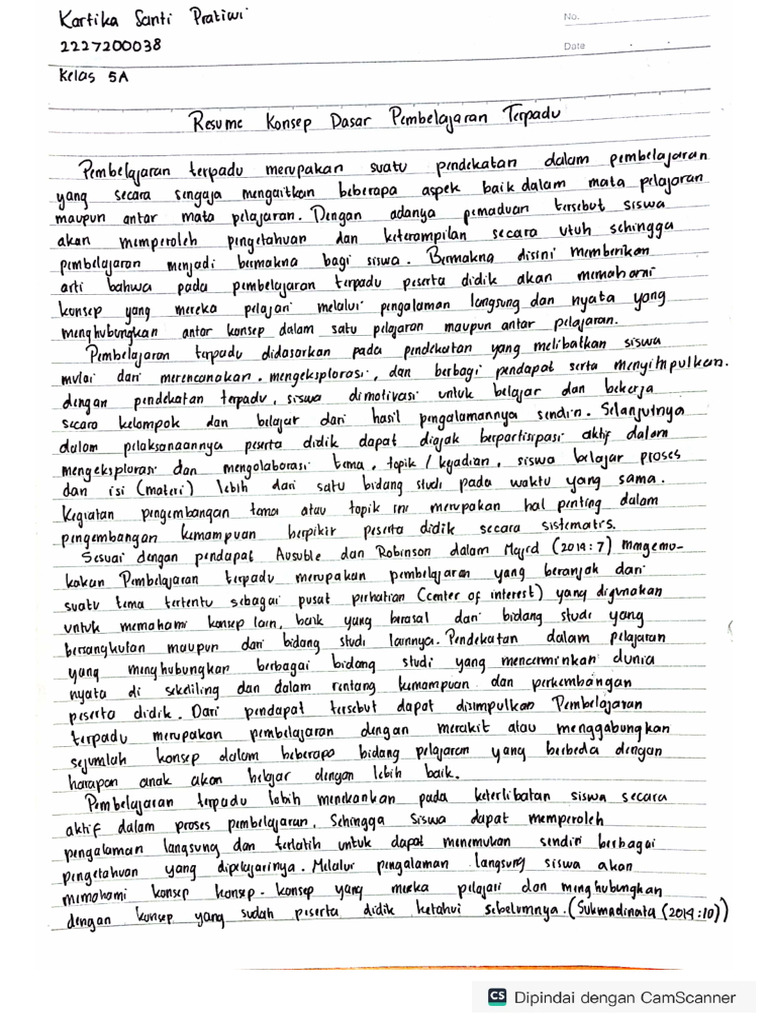 Kartika Santi Pratiwi
No.
2227200038
Date
Kelas 5A
Resume Konsep Dasar Pembelajaran Terpadu
Pembelajaran terpadu merupakan suatu pendekatan dalam pembelajaran
yang secara sengaja mengaitkan beberapa aspek baik dalam mata pelajaran
maupun antar mata pelajaran. Dengan adanya pemaduan tersebut siswa
akan memperoleh pengetahuan dan keterampilan secara utuh sehingga
pembelajaran menjadi bermakna bagi siswa. Bermakna disini memberikan
arti bahwa pada pembelajaran terpadu peserta didik akan memahami
konsep yang mereka pelajari melalui pengalaman langsung dan nyata yang
menghubungkan antar konsep dalam satu pelajaran maupun antar pelajaran.
Pembelajaran terpadu didasarkan pada pendekatan yang melibatkan siswa
mulai dari merencanakan, mengeksplorasi, dan berbagi pendapat serta menyimpulkan.
dengan pendekatan terpadu, siswa dimotivasi untuk belajar dan bekerja
secara kelompok dan belajar dari hasil pengalamannya sendiri. Selanjutnya
dalam pelaksanaannya peserta didik dapat diajak berpartisipasi aktif dalam
mengeksplorasi dan mengolaborasi tema, topik / kejadian, siswa belajar proses
dan isi (materi) lebih dari satu bidang studi pada waktu yang sama.
Kegiatan pengembangan tema atau topik ini merupakan hal penting dalam
pengembangan kemampuan berpikir peserta didik secara sistematis.
Sesuai dengan pendapat Ausuble dan Robinson dalam Majid (2014:7) mengemu-
kakan Pembelajaran terpadu merupakan pembelajaran yang beranjak dari
suatu tema tertentu sebagai pusat perhatian (center of interest) yang digunakan
untuk memahami konsep lain, baik yang berasal dari bidang studi yang
bersangkutan maupun dari bidang studi lainnya. Pendekatan dalam pelajaran
yang menghubungkan berbagai bidang studi yang mencerminkan dunia
nyata di sekeliling dan dalam rentang kemampuan dan perkembangan
peserta didik. Dari pendapat tersebut dapat disimpulkan Pembelajaran
terpadu merupakan pembelajaran dengan merakit atau menggabungkan
sejumlah konsep dalam beberapa bidang pelajaran yang berbeda dengan
harapan anak akan belajar dengan lebih baik.
Pembelajaran terpadu lebih menekankan pada keterlibatan siswa secara
aktif dalam proses pembelajaran, Sehingga siswa dapat memperoleh
pengalaman langsung dan terlatih untuk dapat menemukan sendiri berbagai
pengetahuan yang dipelajarinya. Melalui pengalaman langsung siswa akan
memahami konsep konsep-konsep yang mereka pelajari dan menghubungkan
dengan konsep yang sudah peserta didik ketahui sebelumnya. (Sukmadinata (2014:10))
CS Dipindai dengan CamScanner